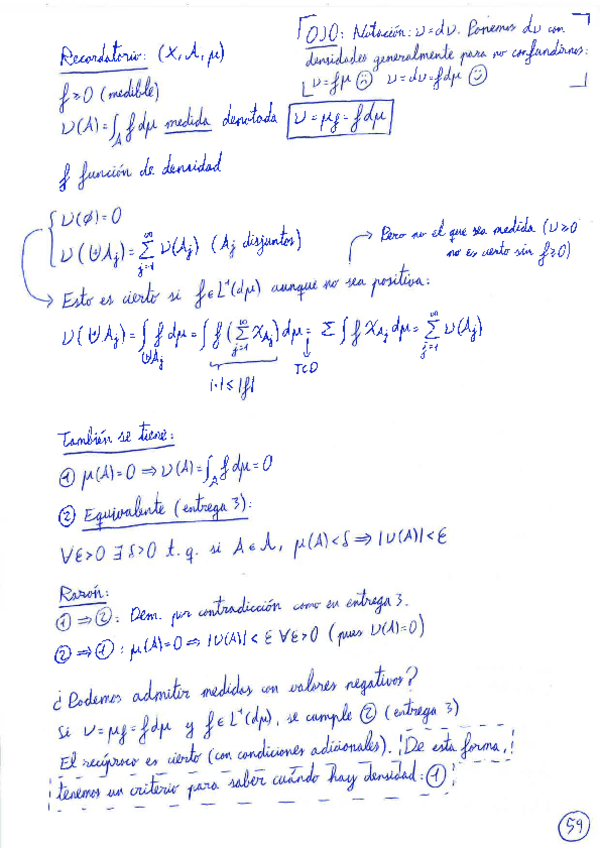 Recordatorio: (X, A, μ)
OJO: Notación: ν = dν. Ponemos dν con
densidades generalmente para no confundirnos:
ν = fμ ☹ ν = dν = fdμ ☺
f ≥ 0 (medible)
ν(A) = ∫_A f dμ medida denotada ν = μ_f = f dμ
f función de densidad
{ ν(∅) = 0
ν(⊎A_j) = Σ_{j=1}^∞ ν(A_j) (A_j disjuntos)
→ Pero no el que sea medida (ν ≥ 0
no es cierto sin f ≥ 0)
→ Esto es cierto si f ∈ L¹(dμ) aunque no sea positiva:
ν(⊎A_j) = ∫_{⊎A_j} f dμ = ∫ f (Σ_{j=1}^∞ χ_{A_j}) dμ = Σ ∫ f χ_{A_j} dμ = Σ_{j=1}^∞ ν(A_j)
|·| ≤ |f|
↓ TCD
También se tiene:
① μ(A) = 0 ⇒ ν(A) = ∫_A f dμ = 0
② Equivalente (entrega 3):
∀ε>0 ∃δ>0 t.q. si A ∈ A, μ(A) < δ ⇒ |ν(A)| < ε
Razón:
① ⇒ ②: Dem. por contradicción como en entrega 3.
② ⇒ ①: μ(A) = 0 ⇒ |ν(A)| < ε ∀ε>0 (pues ν(A) = 0)
¿Podemos admitir medidas con valores negativos?
Si ν = μ_f = f dμ y f ∈ L¹(dμ), se cumple ② (entrega 3)
El recíproco es cierto (con condiciones adicionales). De esta forma,
tenemos un criterio para saber cuándo hay densidad: ①
59